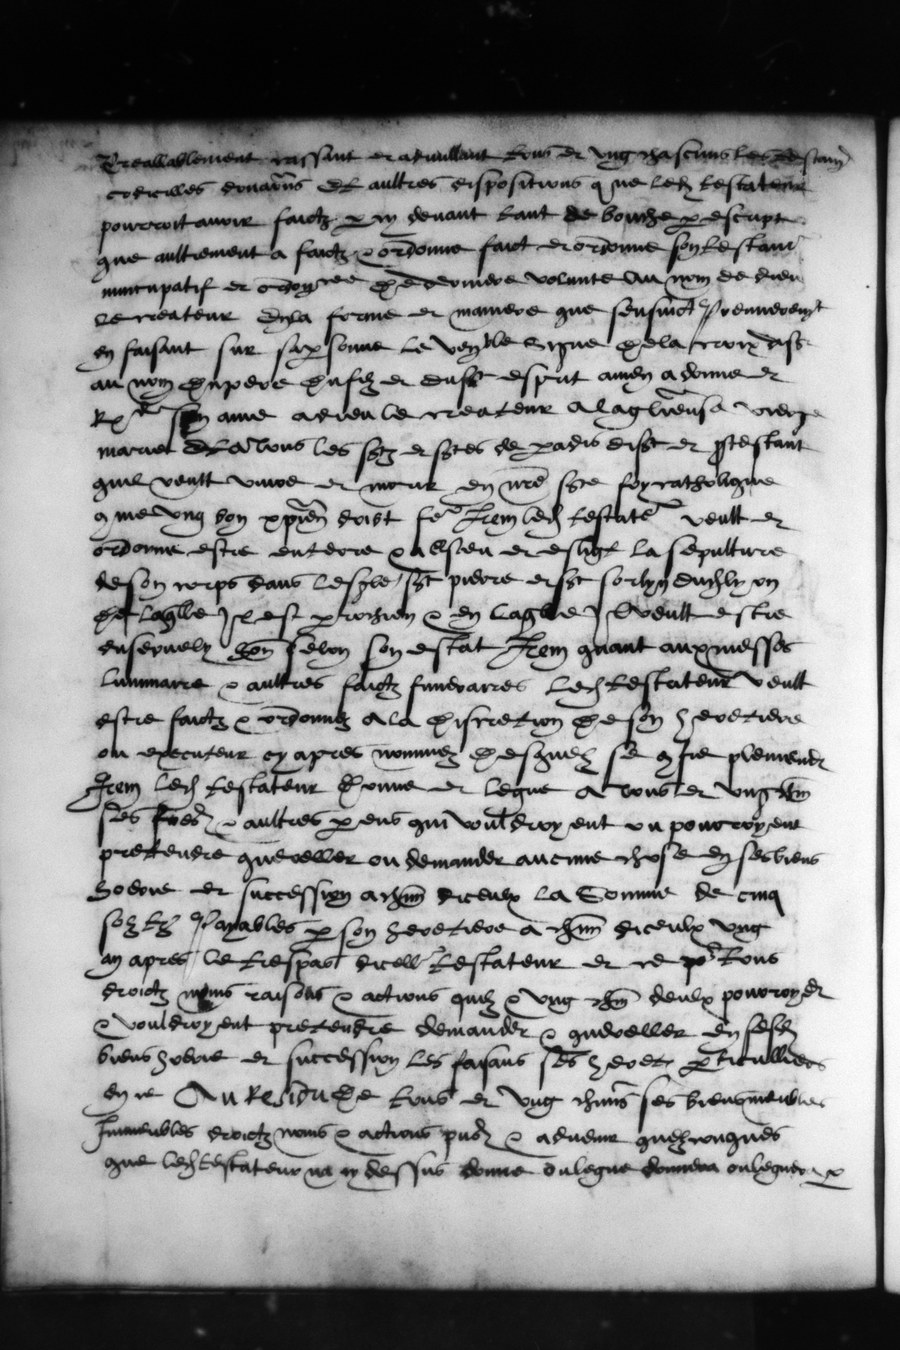 Preallablement cassant et adnullant tous et ung chascuns les testam
codicilles donations et aultres dispositions que led testateur
pourroit avoir faictz par cy devant tant de bouche par escript
que aultrement a faictz & ordonne faict et ordonne son testam
nuncupatif et ordon de derniere volunte Au nom de dieu
le createur en la forme et maniere que sensuict Premierement
en faisant sur sa personne le ven signe de la croix dist
au nom du pere du filz et du st esprit amen a donne et
son ame a dieu le createur a la glorieuse vierge
marie et a tous les sctz et sctes de paradis disct et protestant
quil veult vivre et morir en nre scte foy catholique
que ung bon xpien doibt fe Item led testateur veult et
ordonne estre entere & a esleu et esligt la sepulture
de son corps dans lesglise sct pierre et sct
de il est parrochien & en laglle il veult estre
ensepuely selon son estat Item quant aux messes
luminaire & aultres faictz funerarres led testateur veult
estre faictz & ordonnez a la discretion de son heretiere
ou executeur cy apres nommez desquelz se confie plenement
Item led testateur donne et legue a tous et ung chun
ses & aultres parens qui vouldroyent ou pourroyent
pretendre quereller ou demander aucune chose en ses biens
hoerie et succession a chun diceulx la somme de cinq
solz tz Payables par son heretiere a chun diceulx ung
an apres le trespas dicell testateur et ce po tous
droictz noms raisons & actions quilz & ung chun deulx pourroyent
& vouldroyent pretendre demander & quereller en sesd
biens hoerie et succession les faisans ses heret particulliers
en ce Au Residu de tous et ung chuns ses biens meubles
Immeubles droictz noms & actions pns & advenir quelzconques
que led testateur na cy dessus donne ou legue donnera ou leguera